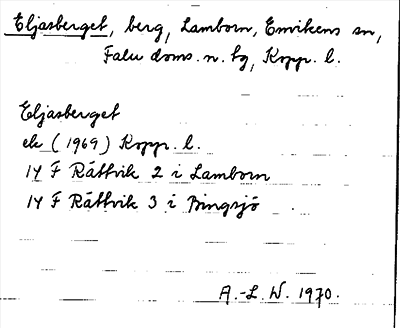 Eljasberget, berg, Lamborn, Envikens sn,
Falu doms. n. tg, Kopp. l.
Eljasberget
ek (1969) Kopp. l.
14 F Rättvik 2 i Lamborn
14 F Rättvik 3 i Bingsjö
A.-L. W. 1970.